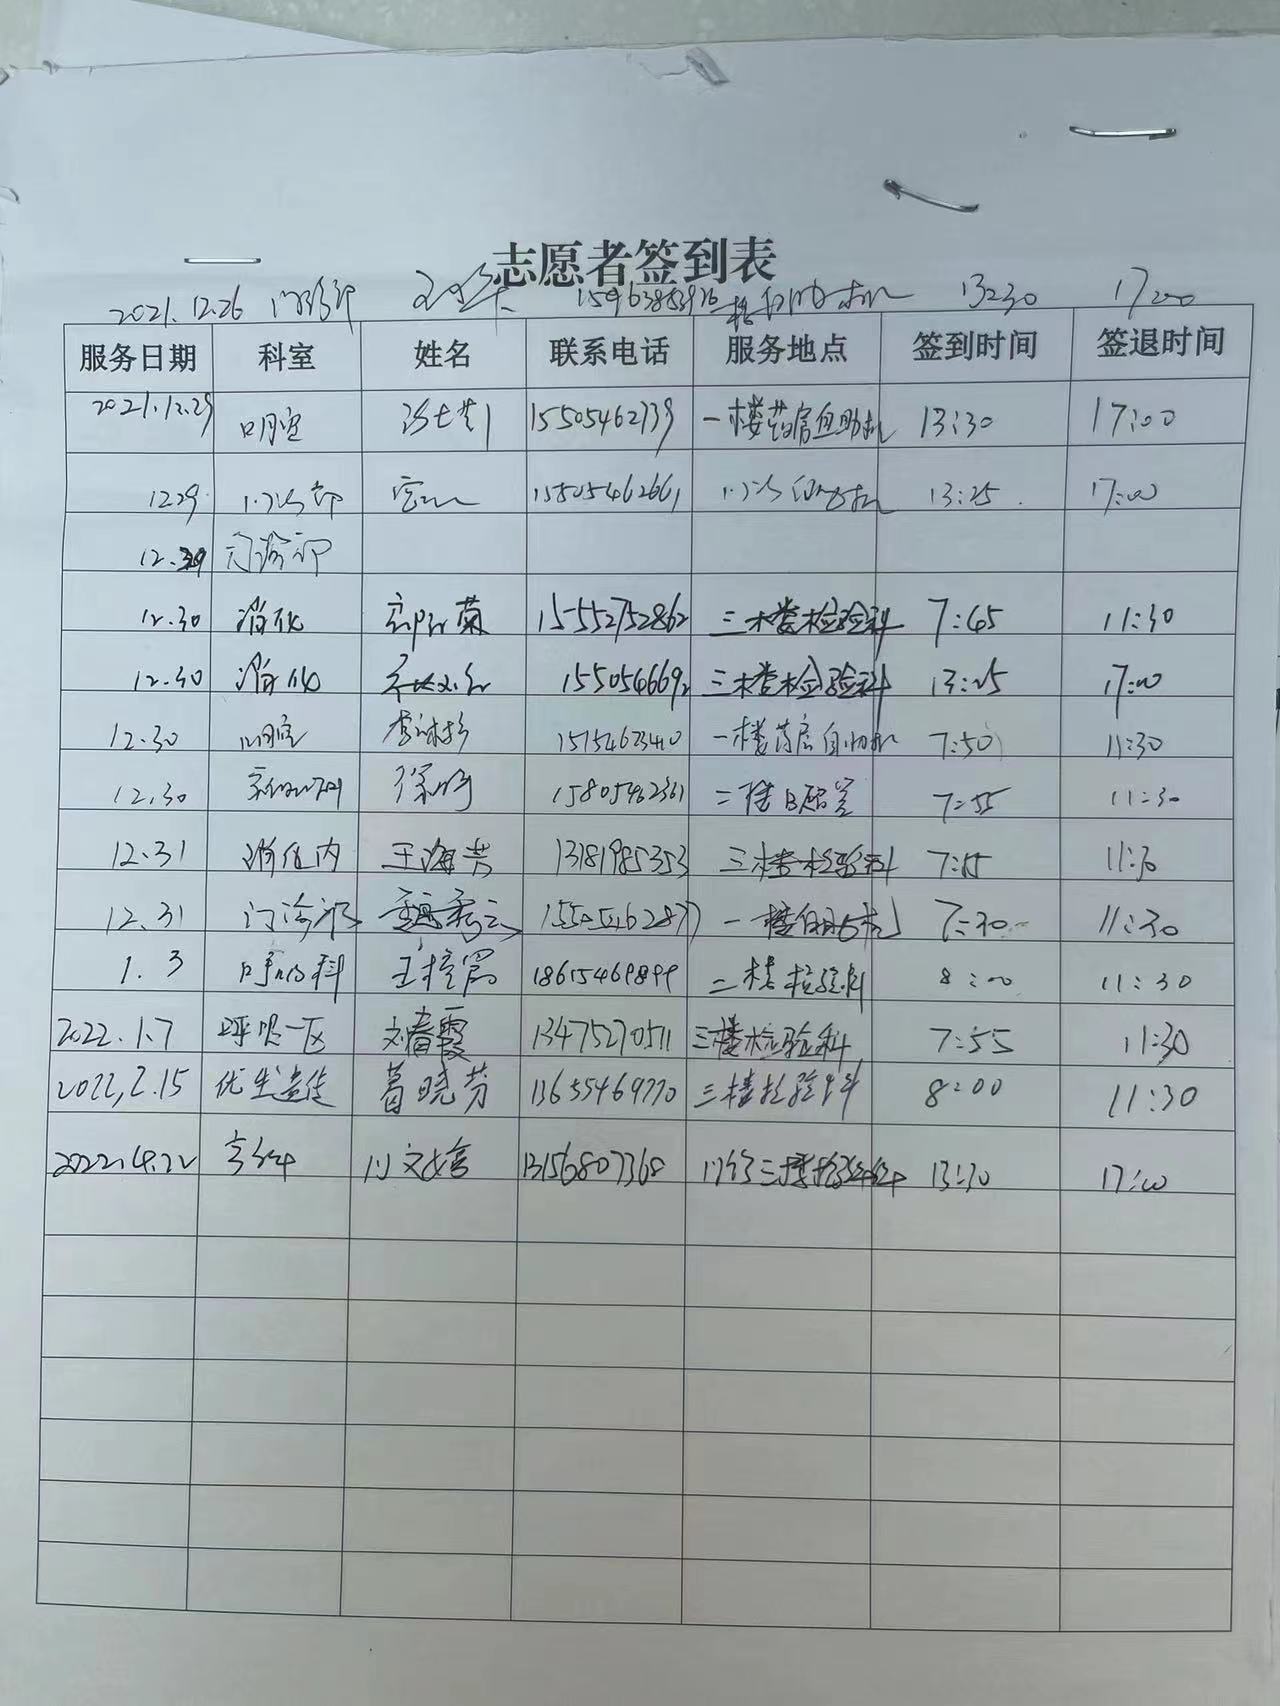 志愿者签到表
2021.12.26 门诊部 13:30 17:00
服务日期 科室 姓名 联系电话 服务地点 签到时间 签退时间
2021.12.29 口腔 15505462739 一楼药房自助机 13:30 17:00
12.29 门诊部 15505462661 门诊自助机 13:25 17:00
12.30 门诊部
12.30 消化 15552752862 三楼检验科 7:45 11:30
12.30 消化 1550546692 三楼检验科 13:25 17:00
12.30 口腔 15154623410 一楼药房自助机 7:50 11:30
12.30 徐 15805462361 二楼 7:55 11:30
12.31 消化内 王海芳 13181985353 三楼检验科 7:55 11:30
12.31 门诊部 15505462877 一楼自助机 7:30 11:30
1.3 呼吸科 18615469899 二楼检验科 8:00 11:30
2022.1.7 呼吸一区 刘春霞 13475270511 三楼检验科 7:55 11:30
2022,2.15 优生遗传 葛晓芳 13655469770 三楼检验科 8:00 11:30
2022.4.22 13156807368 门诊三楼检验科 13:30 17:00